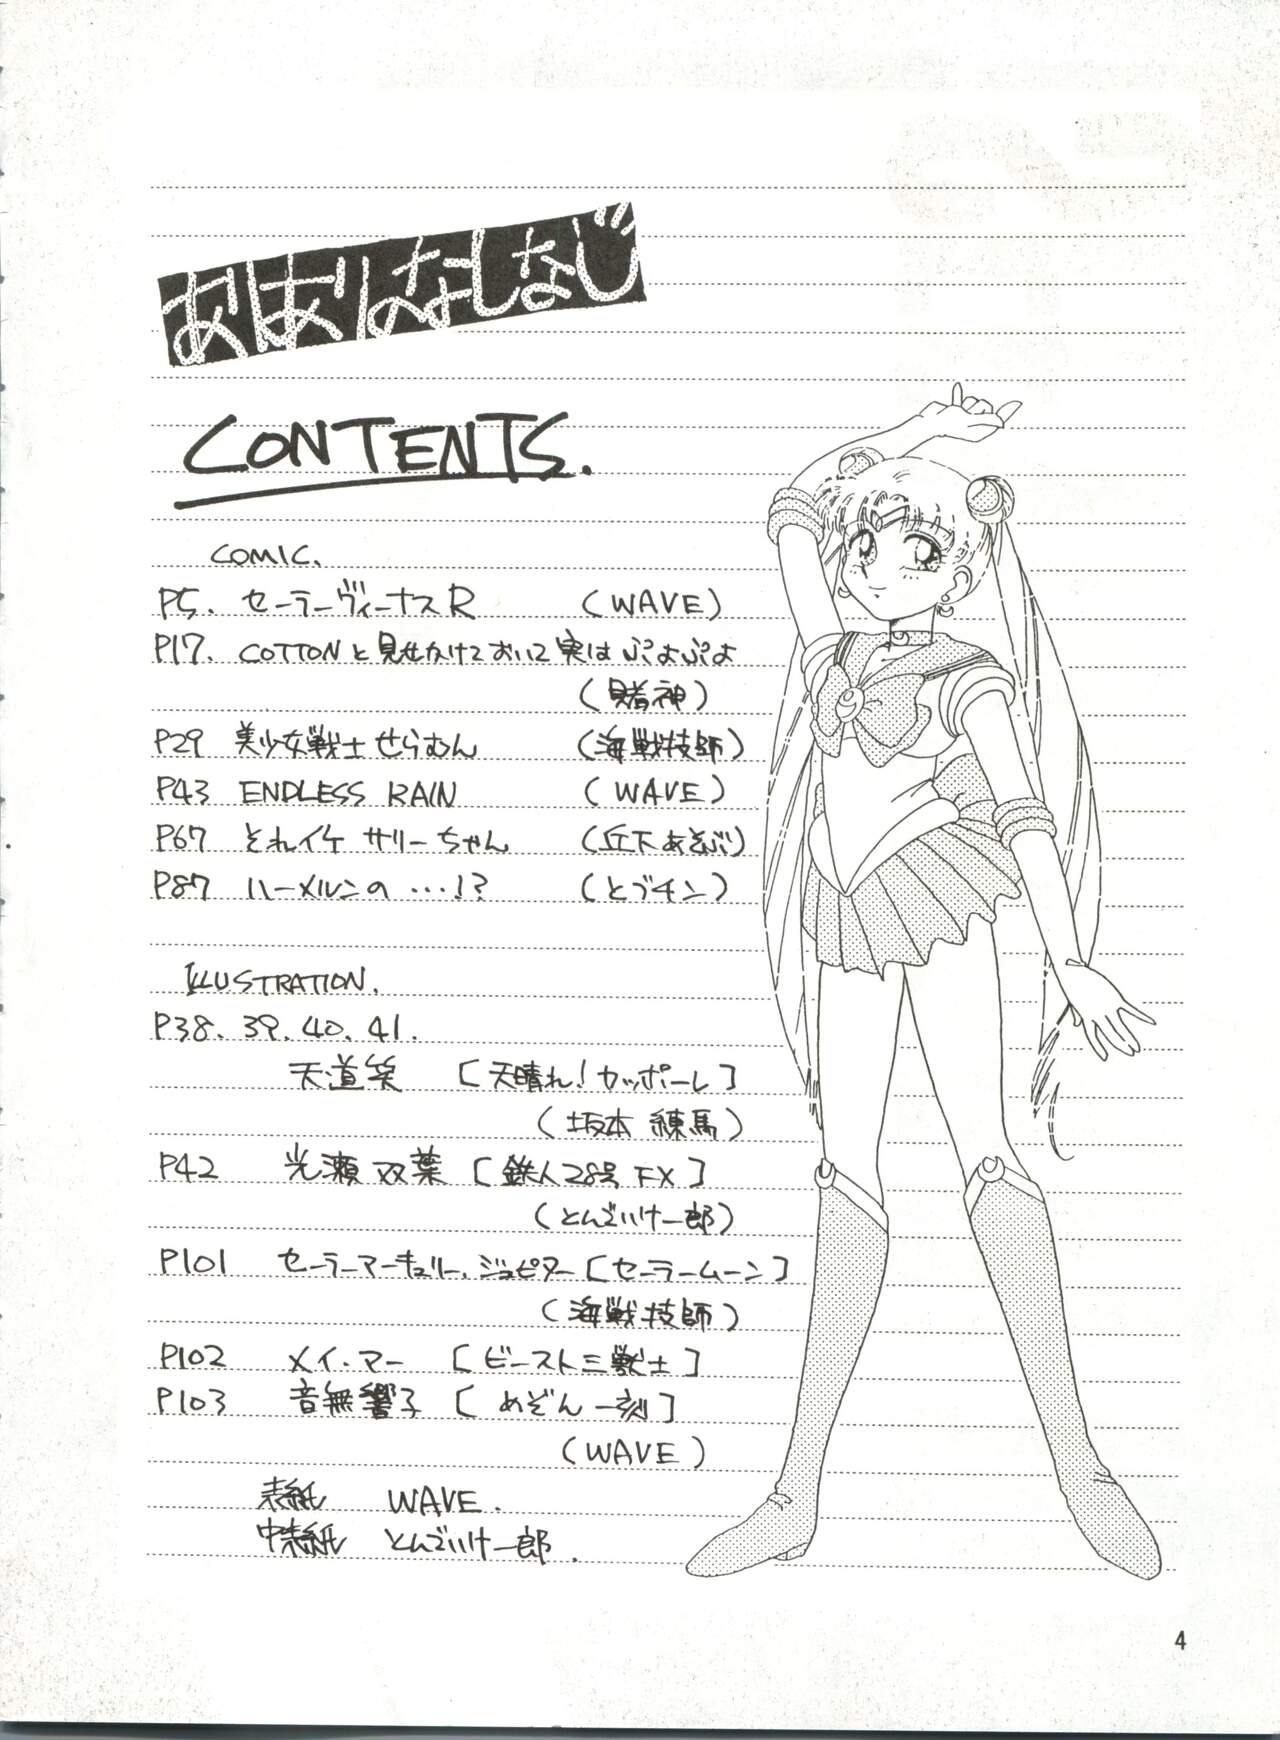 おはありのなしなじ
CONTENTS.
COMIC.
P5. セーラーヴィーナスR (WAVE)
P17. COTTONと見せかけておいて実はぷよぷよ
(賭神)
P29 美少女戦士せらむん (海戦技師)
P43 ENDLESS RAIN (WAVE)
P67 それイケ サリーちゃん (丘下あそぶ)
P87 ハーメルンの…!? (とブチン)
ILLUSTRATION.
P38.39.40.41.
天道笑 [天晴れ!カッポーレ]
(坂本 練馬)
P42 光瀬 双葉 [鉄人28号FX]
(とんでいけ一郎)
P101 セーラーマーキュリー.ジュピター[セーラームーン]
(海戦技師)
P102 メイ・マー [ビースト三獣士]
P103 音無響子 [めぞん一刻]
(WAVE)
表紙 WAVE.
中表紙 とんでいけ一郎.
4